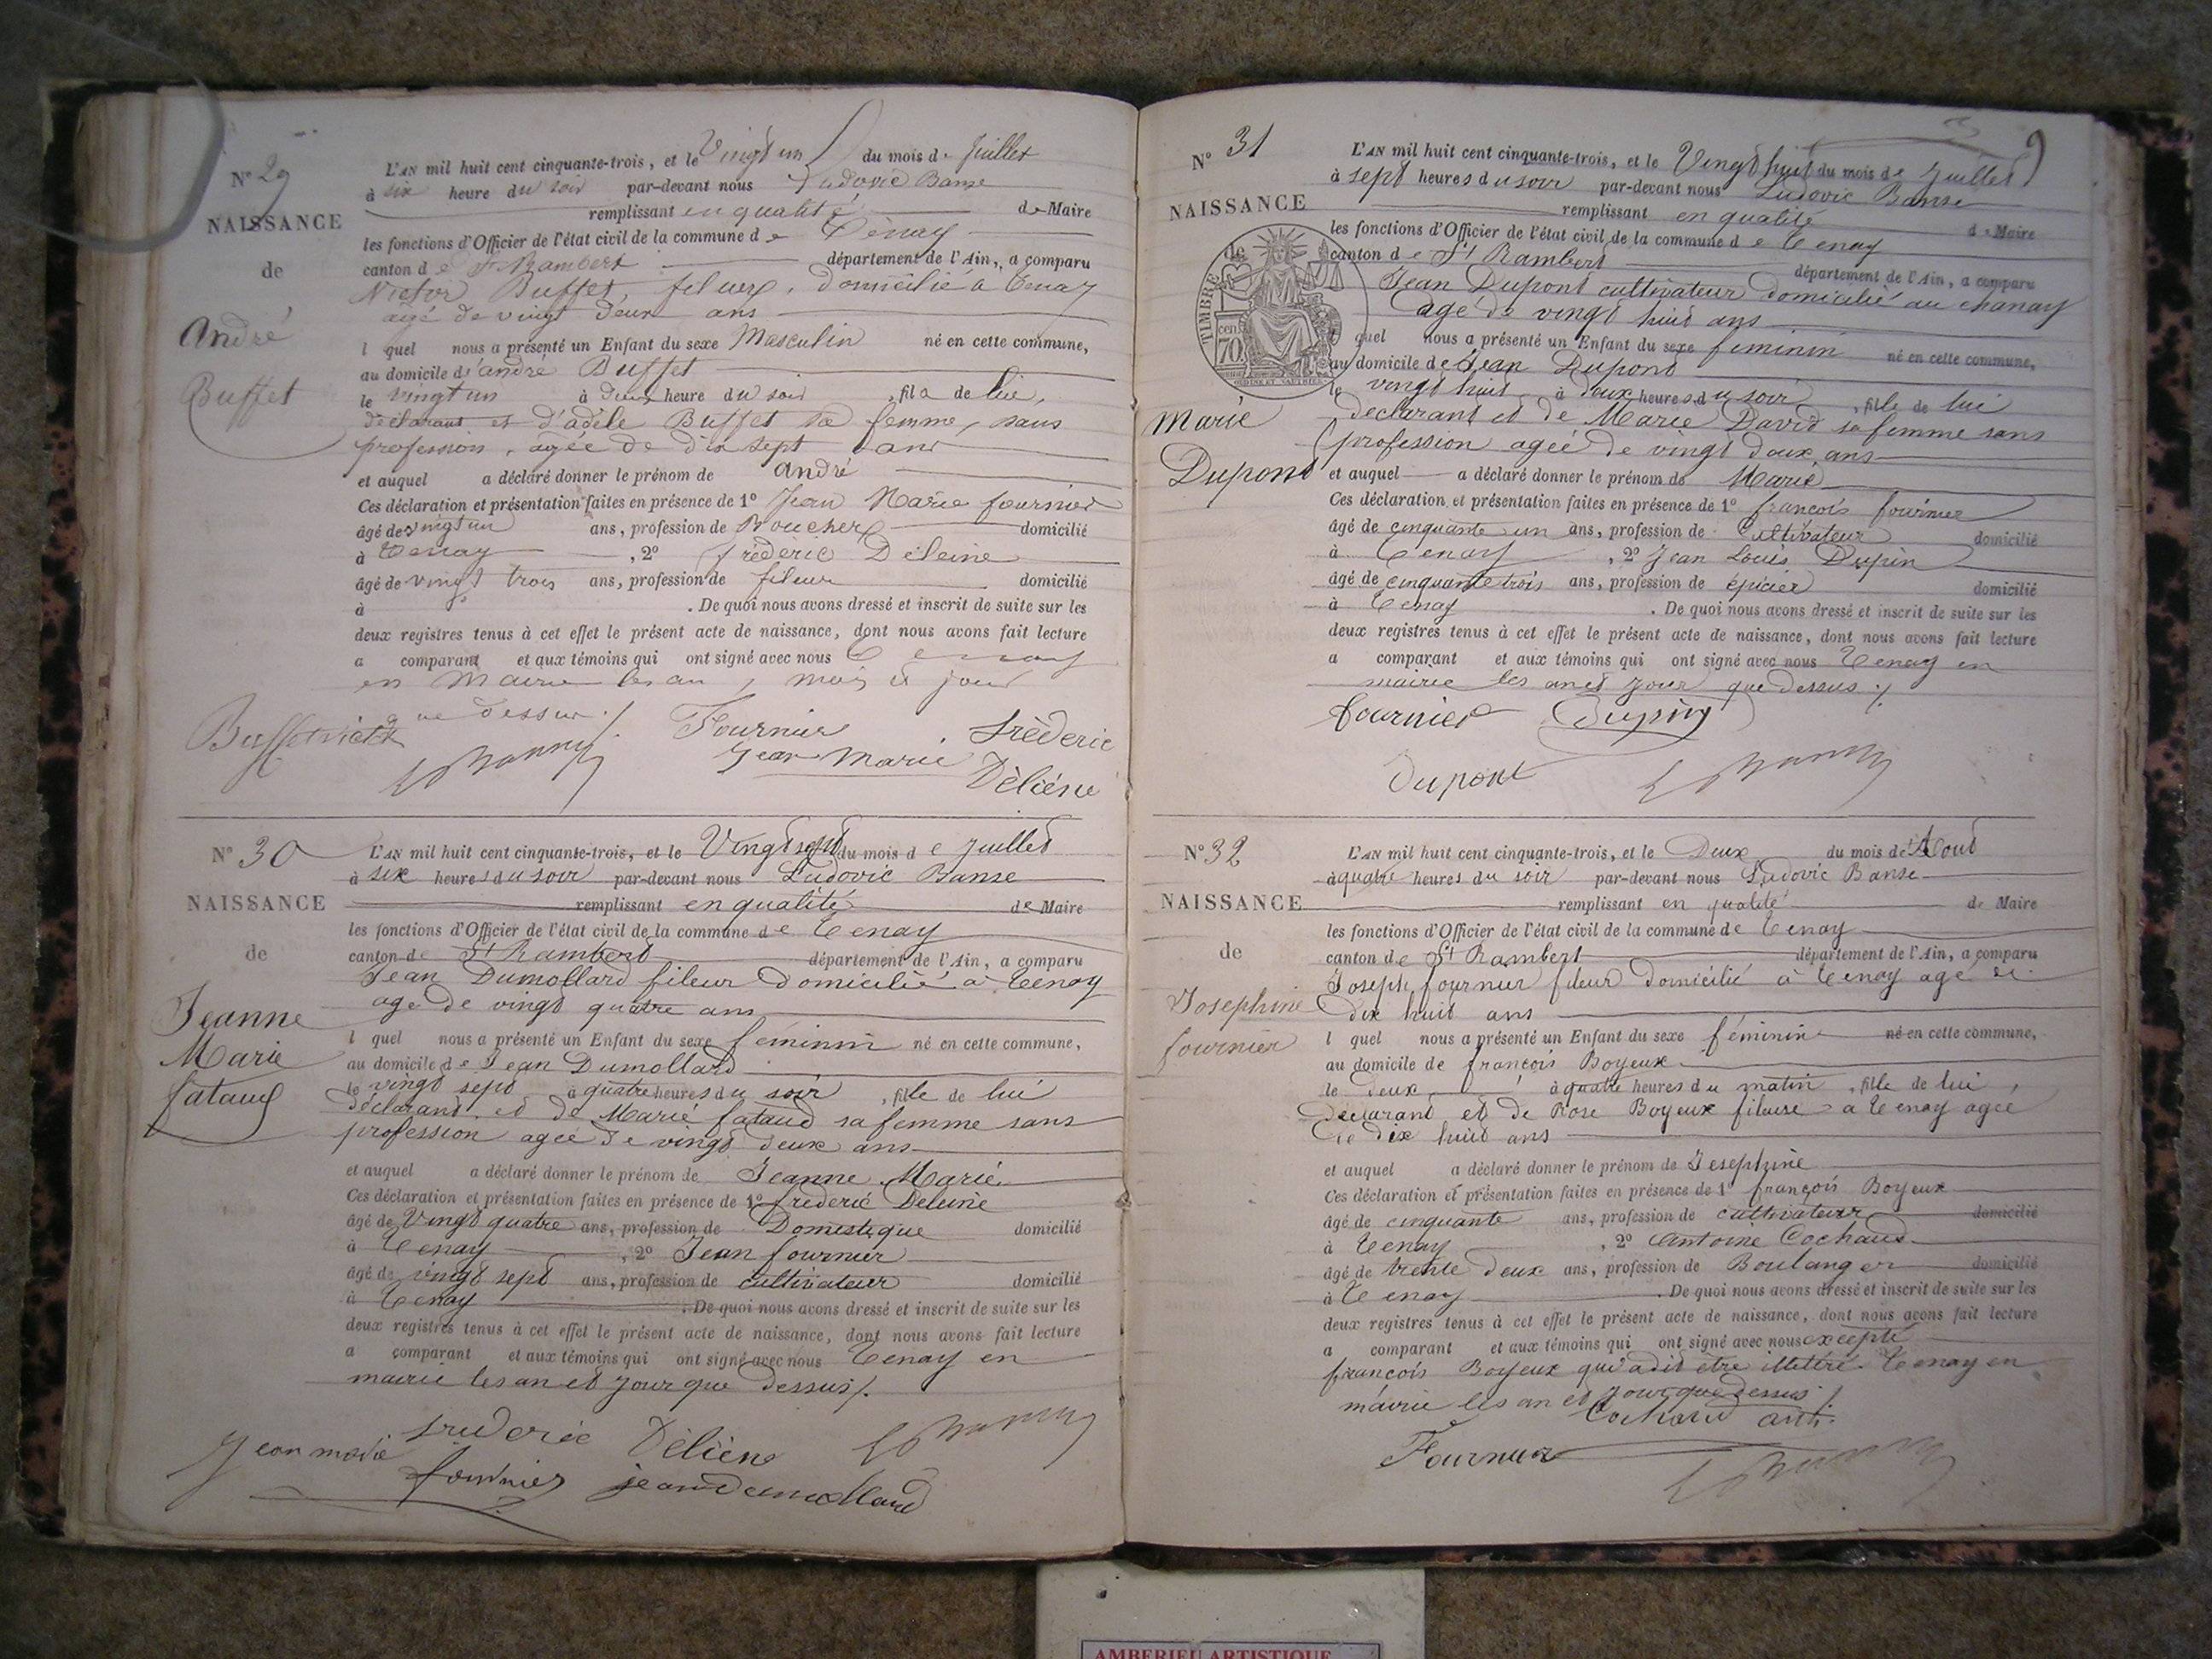 N° 29
NAISSANCE
de
André
Buffet
L'AN mil huit cent cinquante-trois, et le Vingt un du mois de Juillet
à six heure du soir par-devant nous Ludovic Banse
remplissant en qualité de Maire
les fonctions d'Officier de l'état civil de la commune de Tenay
canton de St Rambert département de l'Ain, a comparu
Victor Buffet fileur, domicilié à Tenay
agé de vingt deux ans
l quel nous a présenté un Enfant du sexe Masculin né en cette commune,
au domicile d'andré Buffet
le vingt un à deux heure du soir, fils de lui,
déclarant et d'adèle Buffet sa femme, sans
profession, agée de dix sept ans
et auquel a déclaré donner le prénom de andré
Ces déclaration et présentation faites en présence de 1° Jean Marie fournier
âgé de vingt un ans, profession de Boucher domicilié
à Tenay, 2° frédéric Déleine
âgé de vingt trois ans, profession de fileur domicilié
à . De quoi nous avons dressé et inscrit de suite sur les
deux registres tenus à cet effet le présent acte de naissance, dont nous avons fait lecture
a comparant et aux témoins qui ont signé avec nous Tenay
en Mairie les an, mois et jour
que dessus ./.
Fournier
Jean Marie
Frèderic
Dèliéne
N° 30
NAISSANCE
de
Jeanne
Marie
fataud
L'AN mil huit cent cinquante-trois, et le Vingt sept du mois de Juillet
à six heures du soir par-devant nous Ludovic Banse
remplissant en qualité de Maire
les fonctions d'Officier de l'état civil de la commune de Tenay
canton de St Rambert département de l'Ain, a comparu
Jean Dumollard fileur domicilié à Tenay
age de vingt quatre ans
l quel nous a présenté un Enfant du sexe féminin né en cette commune,
au domicile de Jean Dumollard
le vingt sept à quatre heures du soir, fille de lui
déclarant et de Marie fataud sa femme sans
profession agée de vingt deux ans
et auquel a déclaré donner le prénom de Jeanne Marie
Ces déclaration et présentation faites en présence de 1° frederic Deleine
âgé de Vingt quatre ans, profession de Domestique domicilié
à Tenay, 2° Jean fournier
âgé de vingt sept ans, profession de cultivateur domicilié
à Tenay . De quoi nous avons dressé et inscrit de suite sur les
deux registres tenus à cet effet le présent acte de naissance, dont nous avons fait lecture
a comparant et aux témoins qui ont signé avec nous Tenay en
mairie les an et jour que dessus ./.
frederic Dèliéne
Jean marie fournier jean dumollard
N° 31
9
NAISSANCE
de
TIMBRE
cent
70
Marie
Dupont
L'AN mil huit cent cinquante-trois, et le Vingt huit du mois de Juillet
à sept heures du soir par-devant nous Ludovic Banse
remplissant en qualité de Maire
les fonctions d'Officier de l'état civil de la commune de Tenay
canton de St Rambert département de l'Ain, a comparu
Jean Dupont cultivateur domicilié au chanay
agé de vingt huit ans
l quel nous a présenté un Enfant du sexe féminin né en cette commune,
au domicile de Jean Dupont
le vingt huit à deux heures du soir, fille de lui
declarant et de Marie David sa femme sans
profession ageé de vingt deux ans
et auquel a déclaré donner le prénom de Marie
Ces déclaration et présentation faites en présence de 1° francois fournier
âgé de cinquante un ans, profession de Cultivateur domicilié
à Tenay, 2° Jean Louis Dupin
âgé de cinquante trois ans, profession de épicier domicilié
à Tenay . De quoi nous avons dressé et inscrit de suite sur les
deux registres tenus à cet effet le présent acte de naissance, dont nous avons fait lecture
a comparant et aux témoins qui ont signé avec nous Tenay en
mairie les an et jour que dessus ./.
fournier Dupin
Dupont
N° 32
NAISSANCE
de
Josephine
fournier
L'AN mil huit cent cinquante-trois, et le Deux du mois de Aout
à quatre heures du soir par-devant nous Ludovic Banse
remplissant en qualité de Maire
les fonctions d'Officier de l'état civil de la commune de Tenay
canton de St Rambert département de l'Ain, a comparu
Joseph fournier fileur domicilié à Tenay agé de
dix huit ans
l quel nous a présenté un Enfant du sexe féminin né en cette commune,
au domicile de françois Boyeux
le deux à quatre heures du matin, fille de lui,
declarant et de Rose Boyeux fileuse à Tenay agée
de dix huit ans
et auquel a déclaré donner le prénom de Josephine
Ces déclaration et présentation faites en présence de 1° françois Boyeux
âgé de cinquante ans, profession de cultivateur domicilié
à Tenay, 2° Antoine Cochaud
âgé de trente deux ans, profession de Boulanger domicilié
à Tenay . De quoi nous avons dressé et inscrit de suite sur les
deux registres tenus à cet effet le présent acte de naissance, dont nous avons fait lecture
a comparant et aux témoins qui ont signé avec nous excepté
françois Boyeux qui a dit être illettré. Tenay en
mairie les an et jour que dessus ./.
Cochaud ant.
Fournier
AMBERIEU ARTISTIQUE